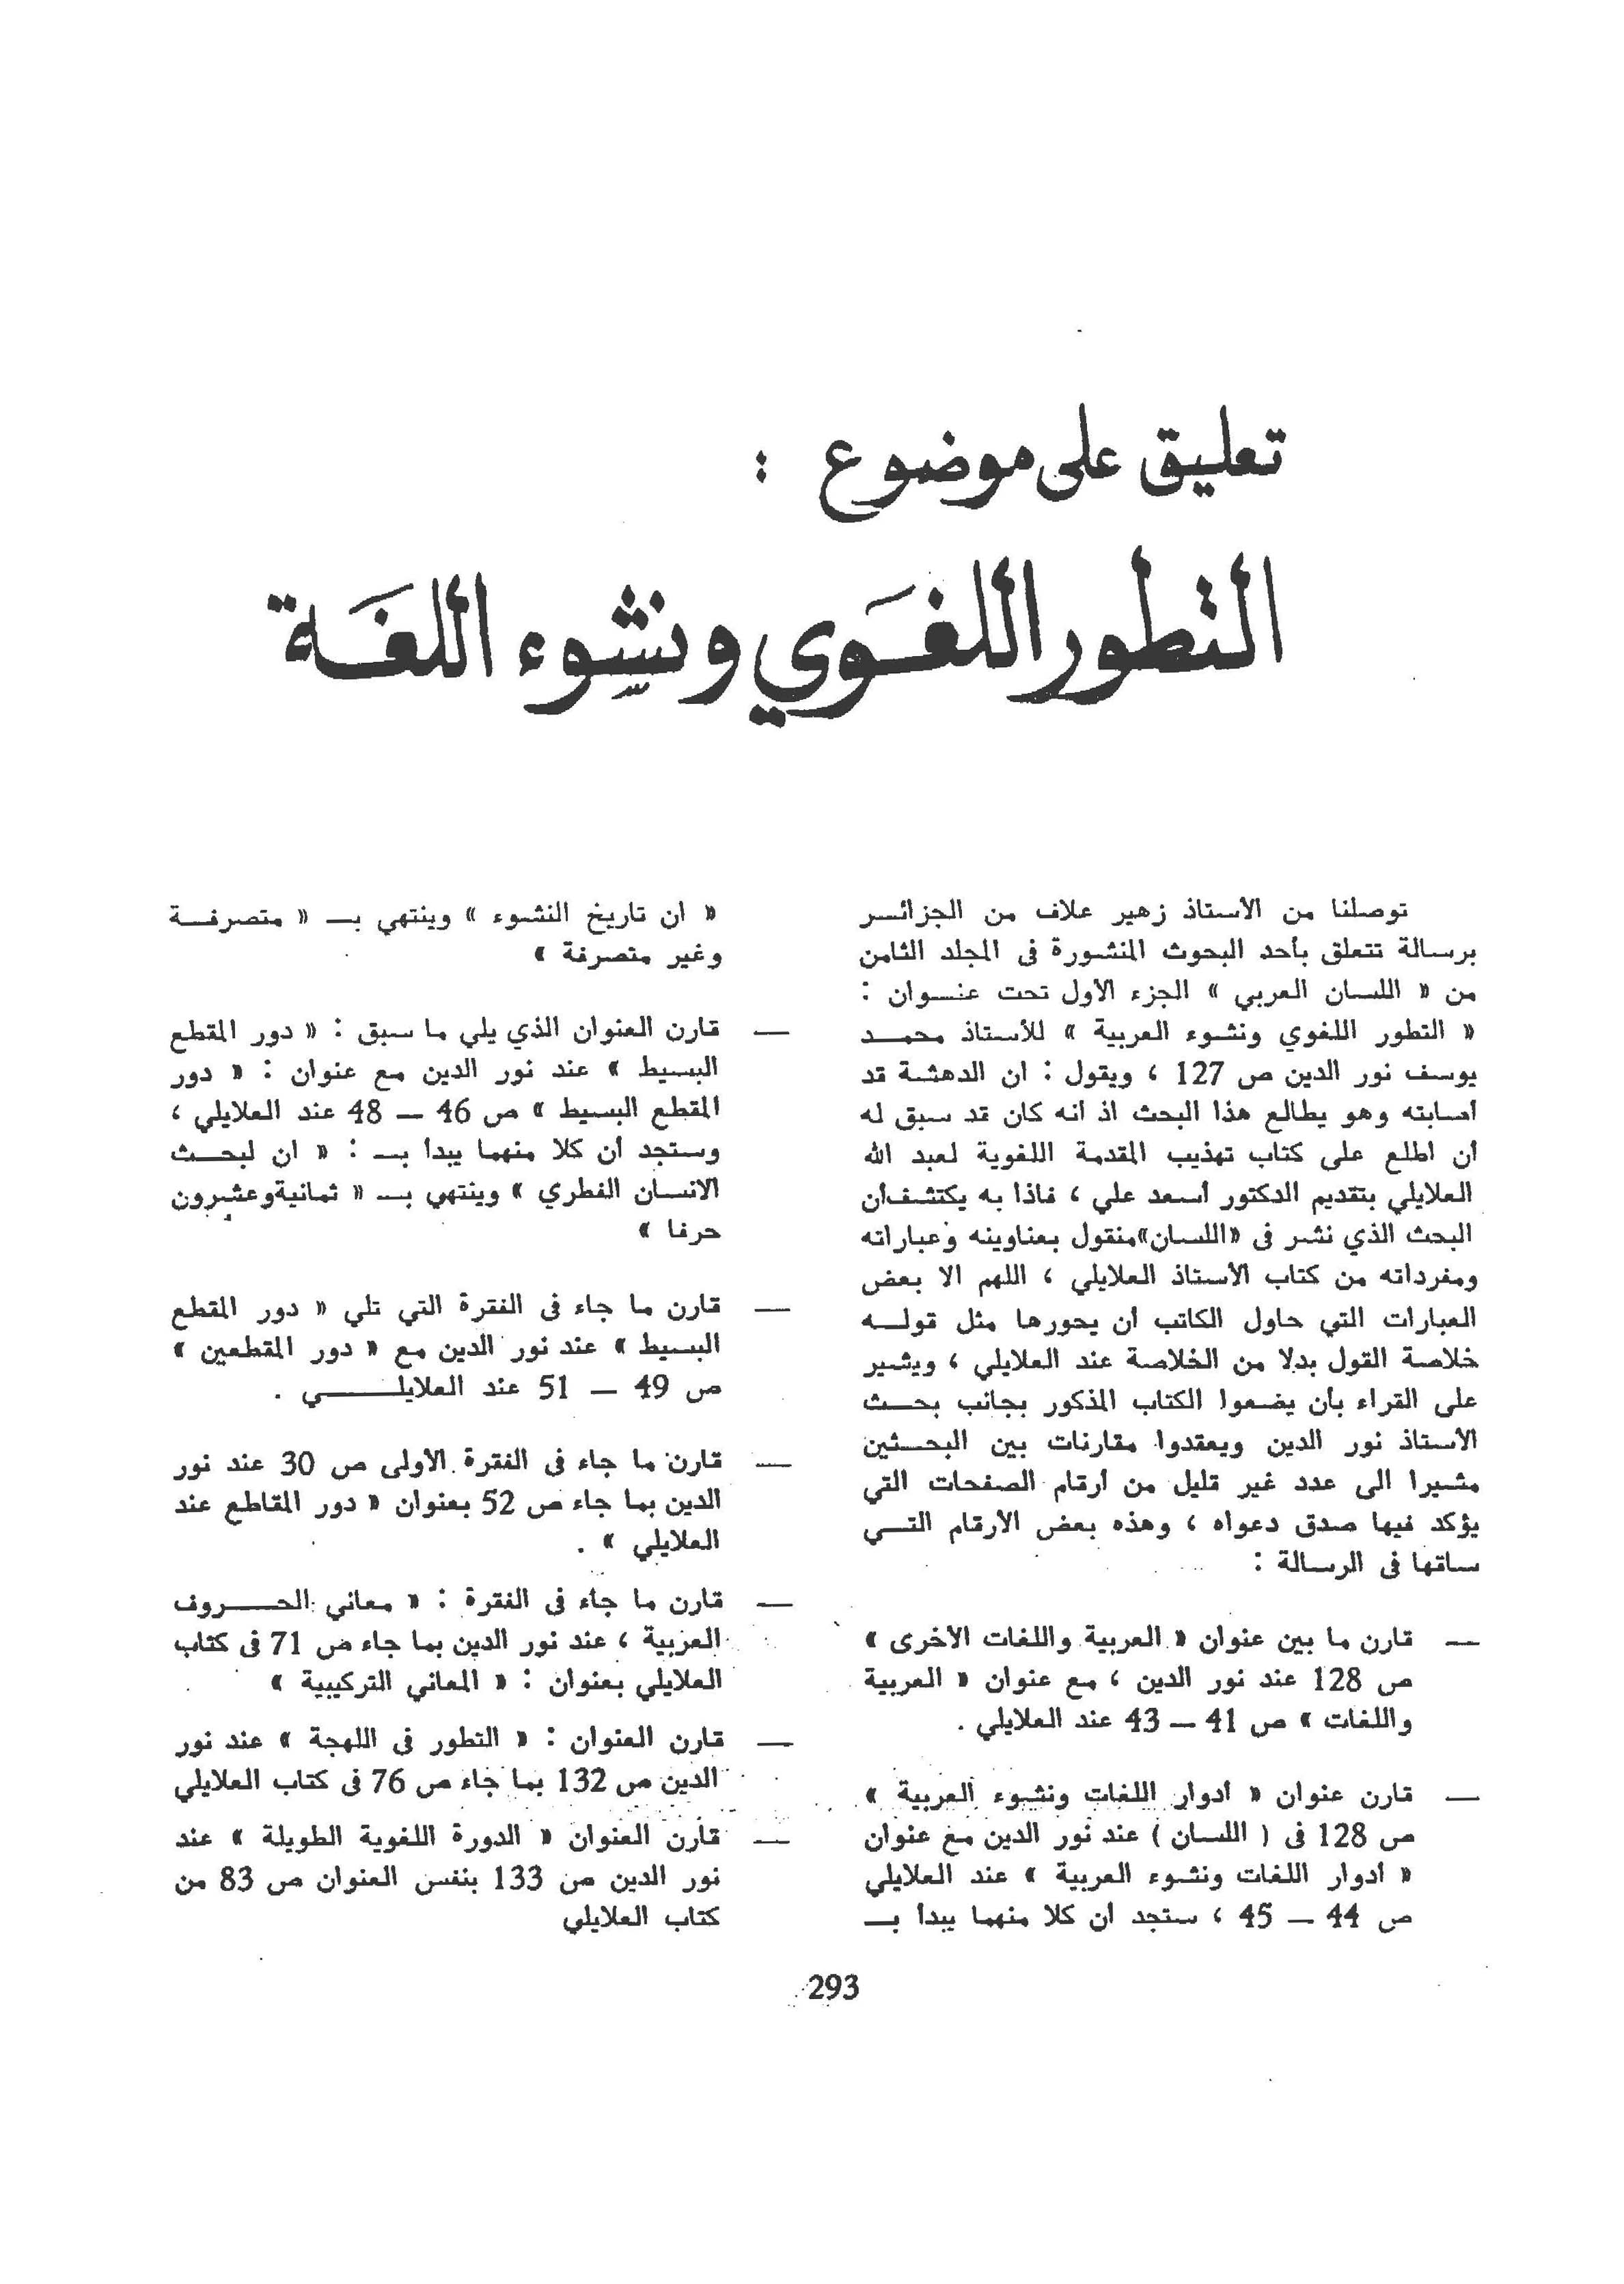 تعليق على موضوع :
التطور اللغوي ونشوء اللغة
توصلنا من الأستاذ زهير علاف من الجزائـر
برسالة تتعلق بأحد البحوث المنشورة فى المجلد الثامن
من « اللسان العربي » الجزء الأول تحت عنـوان :
« التطور اللغوي ونشوء العربية » للأستاذ محمـد
يوسف نور الدين ص 127 ، ويقول : ان الدهشة قد
أصابته وهو يطالع هذا البحث اذ أنه كان قد سبق له
أن اطلع على كتاب تهذيب المقدمة اللغوية لعبد الله
العلايلي بتقديم الدكتور أسعد علي ، فاذا به يكتشف أن
البحث الذي نشر فى «اللسان»منقول بعناوينه وعباراته
ومفرداته من كتاب الأستاذ العلايلي ، اللهم الا بعض
العبارات التي حاول الكاتب أن يحورها مثل قولـه
خلاصة القول بدلا من الخلاصة عند العلايلي ، ويشير
على القراء بأن يضعوا الكتاب المذكور بجانب بحـث
الأستاذ نور الدين ويعقدوا مقارنات بين البحـثين
مشيرا الى عدد غير قليل من أرقام الصفحات التي
يؤكد فيها صدق دعواه ، وهذه بعض الأرقام التـي
ساقها فى الرسالة :
— قارن ما بين عنوان « العربية واللغات الأخرى »
ص 128 عند نور الدين ، مع عنوان « العربية
واللغات » ص 41 — 43 عند العلايلي .
— قارن عنوان « أدوار اللغات ونشوء العربية »
ص 128 فى ( اللسان ) عند نور الدين مع عنوان
« أدوار اللغات ونشوء العربية » عند العلايلي
ص 44 — 45 ، ستجد أن كلا منهما يبدأ بـ
« ان تاريخ النشوء » وينتهي بـ « متصرفـة
وغير متصرفة »
— قارن العنوان الذي يلي ما سبق : « دور المقطع
البسيط » عند نور الدين مع عنوان : « دور
المقطع البسيط » ص 46 — 48 عند العلايلي ،
وستجد أن كلا منهما يبدأ بـ : « ان لبحـث
الانسان الفطري » وينتهي بـ « ثمانيةوعشرون
حرفا »
— قارن ما جاء فى الفقرة التي تلي « دور المقطع
البسيط » عند نور الدين مع « دور المقطعين »
ص 49 — 51 عند العلايلـــي .
— قارن ما جاء فى الفقرة الأولى ص 30 عند نور
الدين بما جاء ص 52 بعنوان « دور المقاطع عند
العلايلي » .
— قارن ما جاء فى الفقرة : « معاني الحـــروف
العربية ، عند نور الدين بما جاء ص 71 فى كتاب
العلايلي بعنوان : « المعاني التركيبية »
— قارن العنوان : « التطور فى اللهجة » عند نور
الدين ص 132 بما جاء ص 76 فى كتاب العلايلي
— قارن العنوان « الدورة اللغوية الطويلة » عند
نور الدين ص 133 بنفس العنوان ص 83 من
كتاب العلايلي
293